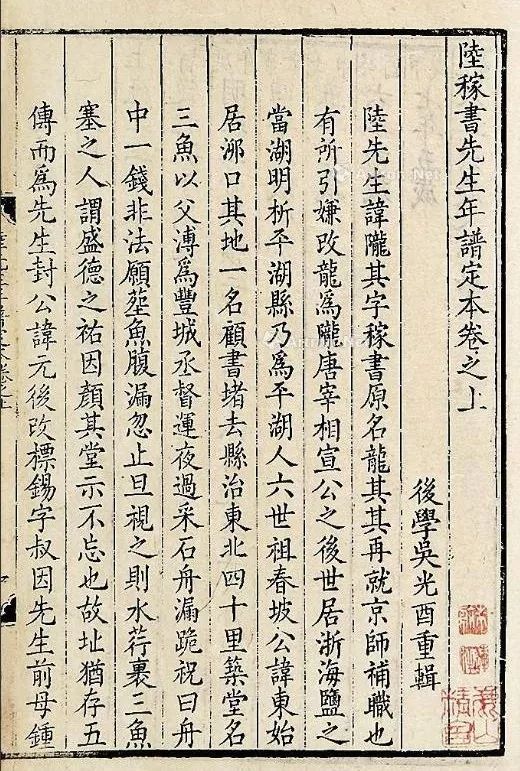 陸稼書先生年譜定本卷之上
後學吳光酉重輯
陸先生諱隴其字稼書原名龍其其再就京師補職也
有所引嫌改龍爲隴唐宰相宣公之後世居浙海鹽之
當湖明析平湖縣乃爲平湖人六世祖春坡公諱東始
居泖口其地一名顧書堵去縣治東北四十里築堂名
三魚以父溥爲豐城丞督運夜過采石舟漏跪祝曰舟
中一錢非法願塟魚腹漏忽止旦視之則水荇裹三魚
塞之人謂盛德之祐因顏其堂示不忘也故址猶存五
傳而爲先生封公諱元後改標錫字叔因先生前母鍾